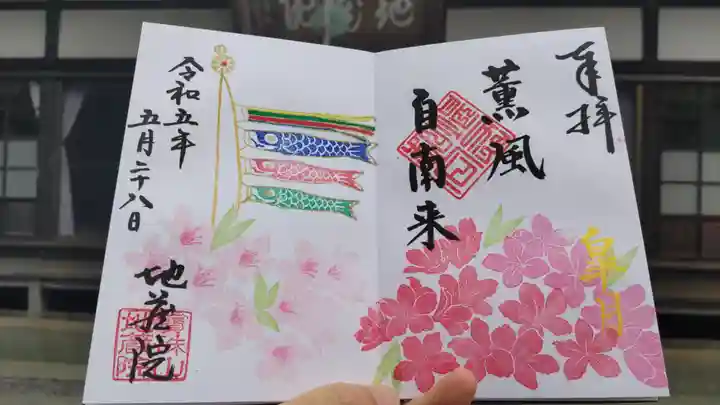 奉拝
薫風
自南来
皐月
令和五年
五月二十八日
地蔵院